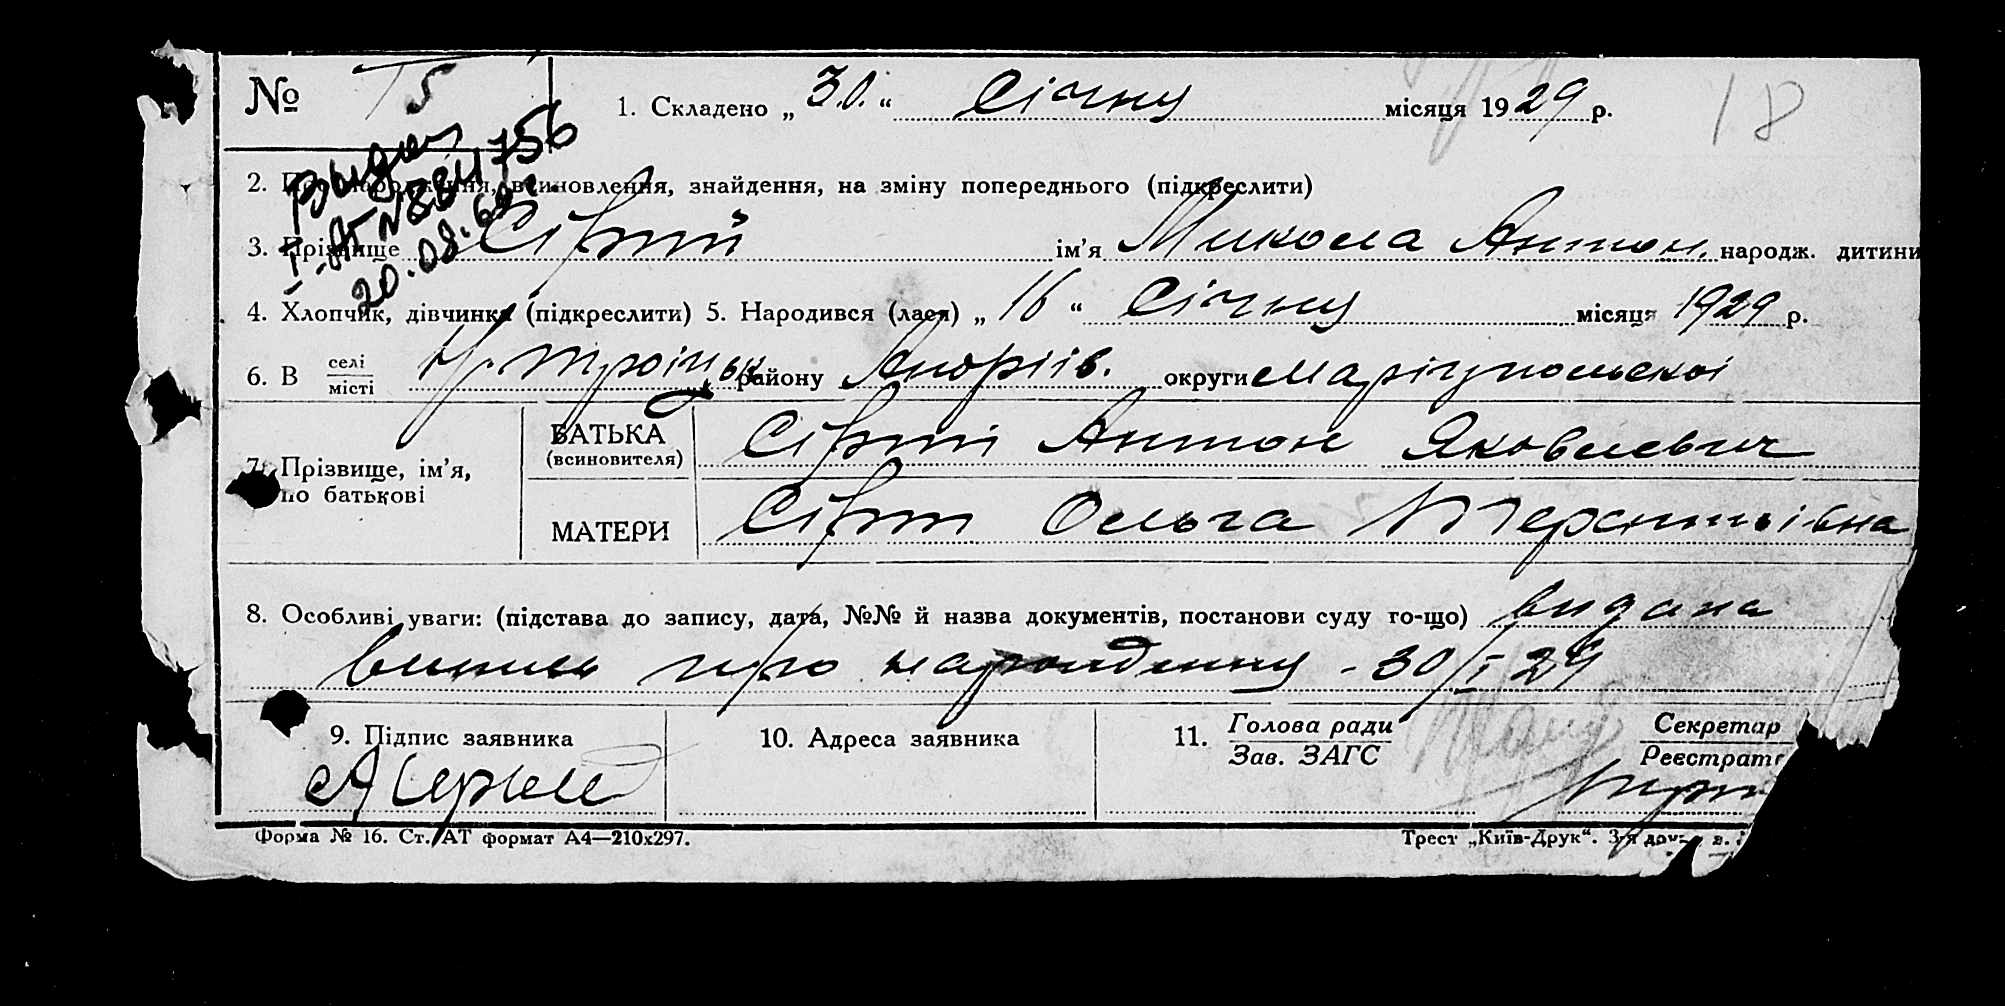 № 5
1. Складено „ 30. “ Січня місяця 1929 р.
18
2. Про народження, всиновлення, знайдення, на зміну попереднього (підкреслити)
I-АГ №
20.08.
3. Прізвище ім’я Микола Антон. народж. дитини
4. Хлопчик, дівчинка (підкреслити) 5. Народився (лася) „ 16 “ Січня місяця 1929 р.
6. В селі району Андріїв. округи Маріупольскої
місті
БАТЬКА Антон Яковлевич
(всиновителя)
7. Прізвище, ім’я,
по батькові
МАТЕРИ Ольга
8. Особливі уваги: (підстава до запису, дата, №№ й назва документів, постанови суду то-що) видана
випись про народження - 30/I 29
9. Підпис заявника 10. Адреса заявника 11. Голова ради Секретар
Зав. ЗАГС Реєстрато
Форма № 16. Ст. АТ формат А4—210x297. Трест „Київ-Друк“. 3-я